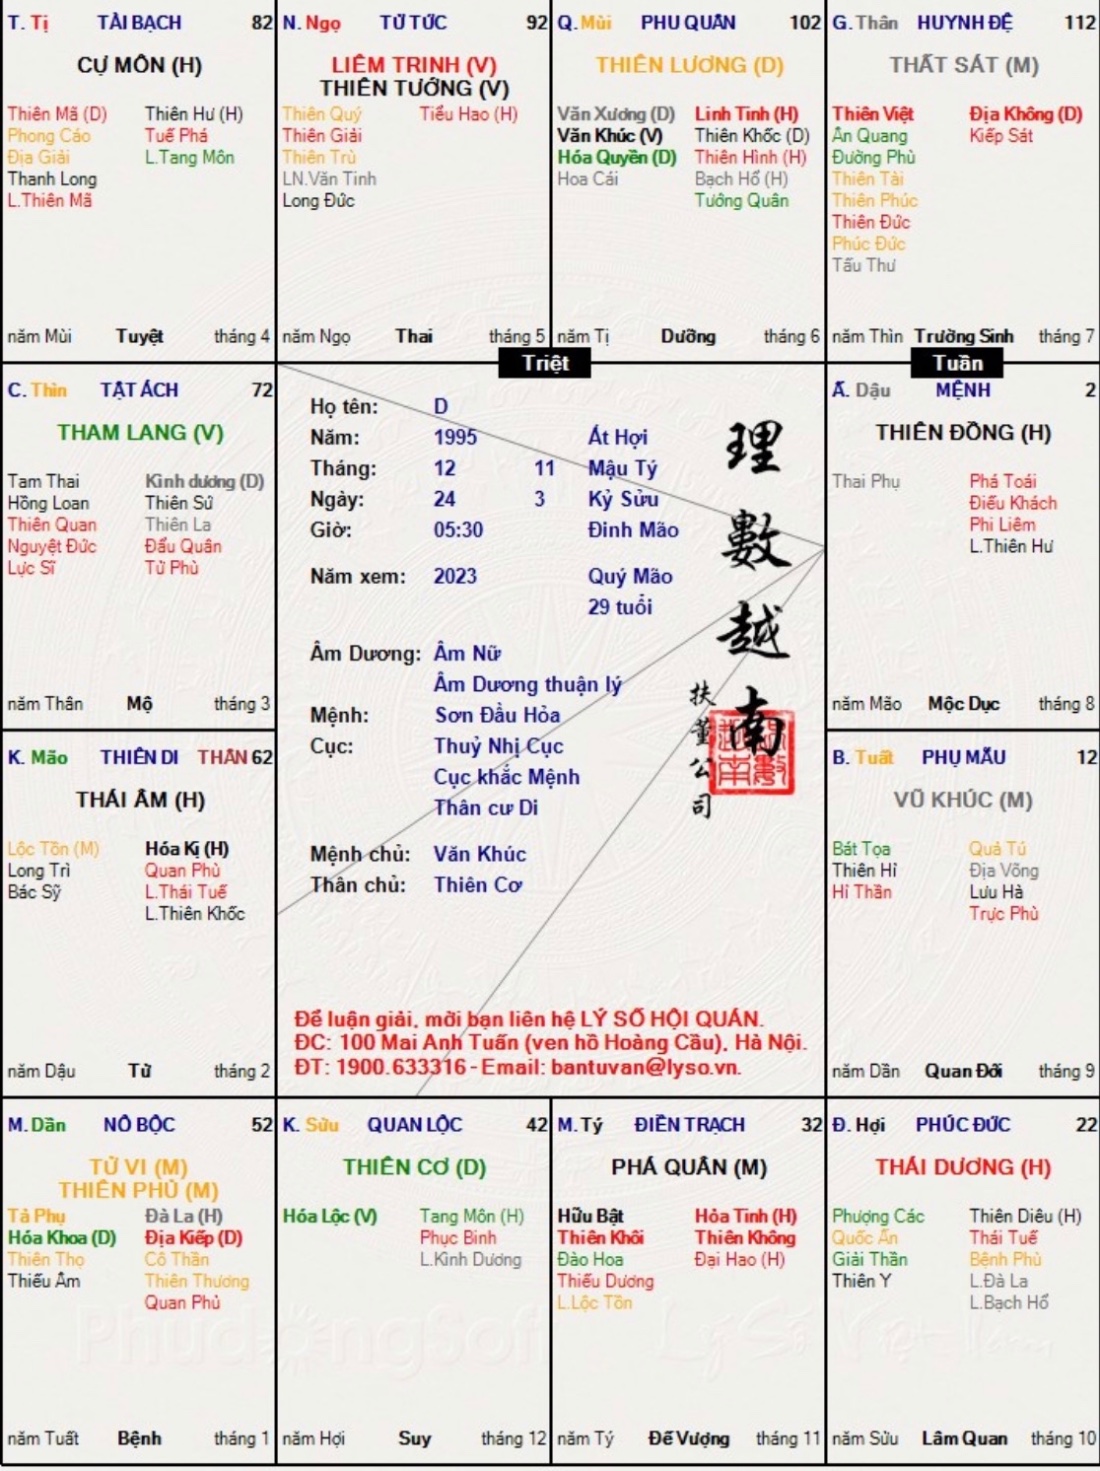 T. Tị TÀI BẠCH 82
CỰ MÔN (H)
Thiên Mã (D) Thiên Hư (H)
Phong Cáo Tuế Phá
Địa Giải L.Tang Môn
Thanh Long
L.Thiên Mã
năm Mùi Tuyệt tháng 4
N. Ngọ TỬ TỨC 92
LIÊM TRINH (V)
THIÊN TƯỚNG (V)
Thiên Quý Tiểu Hao (H)
Thiên Giải
Thiên Trù
LN.Văn Tinh
Long Đức
năm Ngọ Thai tháng 5
Q. Mùi PHU QUÂN 102
THIÊN LƯƠNG (D)
Văn Xương (D) Linh Tinh (H)
Văn Khúc (V) Thiên Khốc (D)
Hóa Quyền (D) Thiên Hình (H)
Hoa Cái Bạch Hổ (H)
Tướng Quân
năm Tị Dưỡng tháng 6
G. Thân HUYNH ĐỆ 112
THẤT SÁT (M)
Thiên Việt Địa Không (D)
Ân Quang Kiếp Sát
Đường Phù
Thiên Tài
Thiên Phúc
Thiên Đức
Phúc Đức
Tấu Thư
năm Thìn Trường Sinh tháng 7
Triệt
Tuần
C. Thìn TẬT ÁCH 72
THAM LANG (V)
Tam Thai Kình dương (D)
Hồng Loan Thiên Sứ
Thiên Quan Thiên La
Nguyệt Đức Đẩu Quân
Lực Sĩ Tử Phù
năm Thân Mộ tháng 3
Họ tên: D
Năm: 1995 Ất Hợi
Tháng: 12 11 Mậu Tý
Ngày: 24 3 Kỷ Sửu
Giờ: 05:30 Đinh Mão
Năm xem: 2023 Quý Mão
29 tuổi
Âm Dương: Âm Nữ
Âm Dương thuận lý
Mệnh: Sơn Đầu Hỏa
Cục: Thuỷ Nhị Cục
Cục khắc Mệnh
Thân cư Di
Mệnh chủ: Văn Khúc
Thân chủ: Thiên Cơ
理數越南
扶董公司
Để luận giải, mời bạn liên hệ LÝ SỐ HỘI QUÁN.
ĐC: 100 Mai Anh Tuấn (ven hồ Hoàng Cầu), Hà Nội.
ĐT: 1900.633316 - Email: bantuvan@lyso.vn.
Ấ. Dậu MỆNH 2
THIÊN ĐỒNG (H)
Thai Phụ Phá Toái
Điếu Khách
Phi Liêm
L.Thiên Hư
năm Mão Mộc Dục tháng 8
K. Mão THIÊN DI THÂN 62
THÁI ÂM (H)
Lộc Tồn (M) Hóa Kị (H)
Long Trì Quan Phù
Bác Sỹ L.Thái Tuế
L.Thiên Khốc
năm Dậu Tử tháng 2
B. Tuất PHỤ MẪU 12
VŨ KHÚC (M)
Bát Tọa Quả Tú
Thiên Hỉ Địa Võng
Hỉ Thần Lưu Hà
Trực Phù
năm Dần Quan Đới tháng 9
M. Dần NÔ BỘC 52
TỬ VI (M)
THIÊN PHỦ (M)
Tả Phụ Đà La (H)
Hóa Khoa (D) Địa Kiếp (D)
Thiên Thọ Cô Thần
Thiếu Âm Thiên Thương
Quan Phủ
năm Tuất Bệnh tháng 1
K. Sửu QUAN LỘC 42
THIÊN CƠ (D)
Hóa Lộc (V) Tang Môn (H)
Phục Binh
L.Kình Dương
năm Hợi Suy tháng 12
M. Tý ĐIỀN TRẠCH 32
PHÁ QUÂN (M)
Hữu Bật Hỏa Tinh (H)
Thiên Khôi Thiên Không
Đào Hoa Đại Hao (H)
Thiếu Dương
L.Lộc Tồn
năm Tý Đế Vượng tháng 11
Đ. Hợi PHÚC ĐỨC 22
THÁI DƯƠNG (H)
Phượng Các Thiên Diêu (H)
Quốc Ấn Thái Tuế
Giải Thần Bệnh Phù
Thiên Y L.Đà La
L.Bạch Hổ
năm Sửu Lâm Quan tháng 10